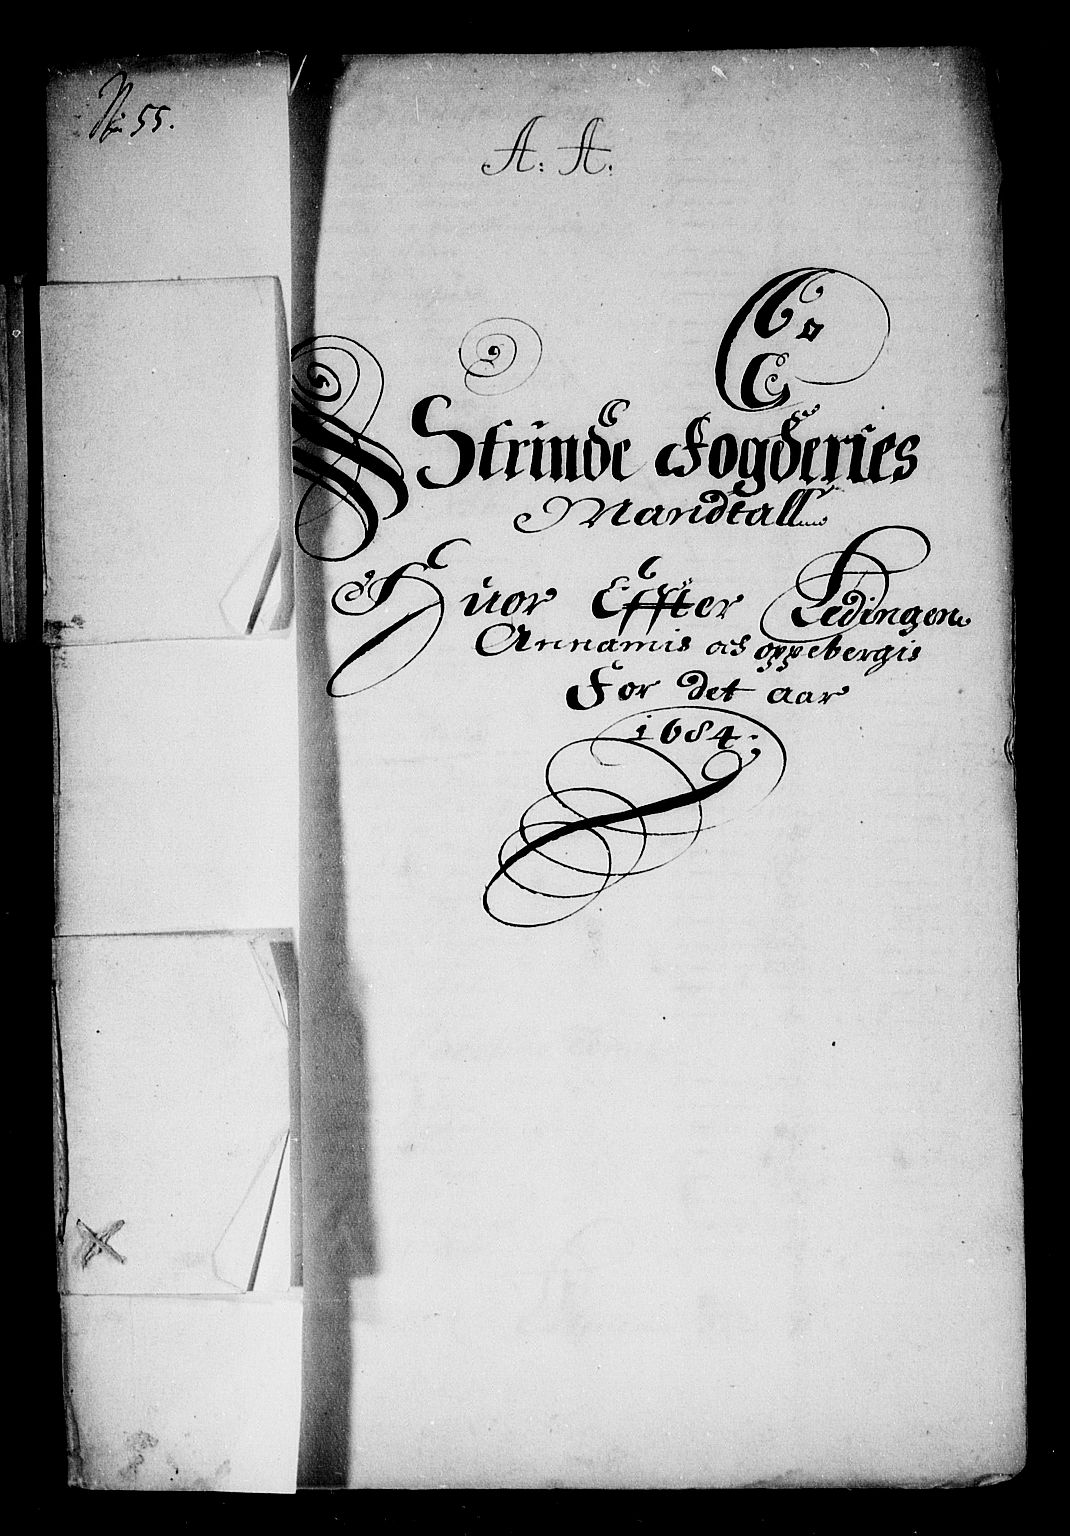 No 55.
A: A:
Strinde Fogderies
Mandtall
Huor Effter Ledingen
Annamis och oppebergis
For det aar
1684: